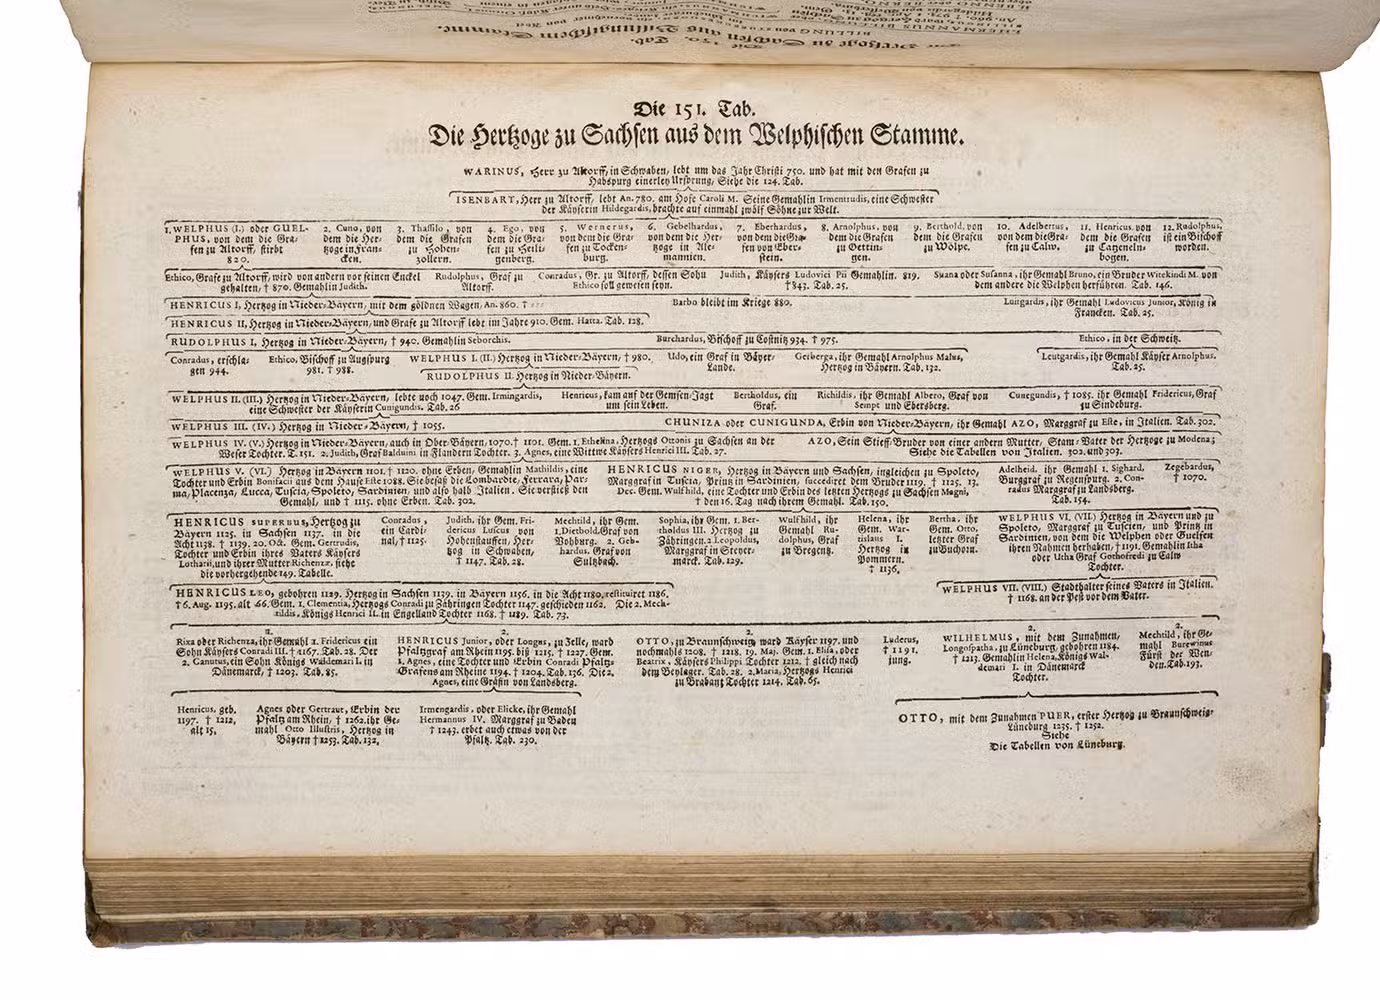 Die 151. Tab.
Die Hertzoge zu Sachsen aus dem Welphischen Stamme.
WARINUS, Herr zu Altorff, in Schwaben, lebt um das Jahr Christi 750. und hat mit den Grafen zu
Habspurg einerley Ursprung, Siehe die 124. Tab.
ISENBART, Herr zu Altorff, lebt An. 780. am Hofe Caroli M. Seine Gemahlin Irmentrudis, eine Schwester
der Käyserin Hildegardis, brachte auf einmahl zwölf Söhne zur Welt.
1. WELPHUS (I.) oder GUEL-
PHUS, von dem die Gra-
fen zu Altorff, stirbt
820.
2. Cuno, von
dem die Her-
tzoge in Fran-
cken.
3. Thassilo, von
dem die Grafen
zu Hohen-
zollern.
4. Ego, von
dem die Gra-
fen zu Heili-
genberg.
5. Wernerus,
von dem die Gra-
fen zu Tocken-
burg.
6. Gebelhardus,
von dem die Her-
tzoge in Ale-
mannien.
7. Eberhardus,
von dem die Gra-
fen von Eber-
stein.
8. Arnolphus, von
dem die Grafen
zu Oettin-
gen.
9. Berthold, von
dem die Grafen
zu Wolpe.
10. Adelbertus,
von dem die Gra-
fen zu Calw.
11. Henricus, von
dem die Grafen
zu Catzeneln-
bogen.
12. Rudolphus,
ist ein Bischoff
worden.
Ethico, Grafe zu Altorff, wird von andern vor seinen Enckel
gehalten, † 870. Gemahlin Judith.
Rudolphus, Graf zu
Altorff.
Conradus, Gr. zu Altorff, dessen Sohn
Ethico soll gewesen seyn.
Judith, Käysers Ludovici Pii Gemahlin. 819.
† 843. Tab. 25.
Suana oder Susanna, ihr Gemahl Bruno, ein Bruder Witekindi M. von
dem andere die Welphen herführen. Tab. 146.
HENRICUS I, Hertzog in Nieder-Bäyern, mit dem göldnen Wagen, An. 860. †
Barbo bleibt im Kriege 880.
Lungardis, ihr Gemahl Ludovicus Junior, König in
Francken. Tab. 25.
HENRICUS II, Hertzog in Nieder-Bäyern, und Grafe zu Altorff lebt im Jahre 910. Gem. Hatta. Tab. 128.
RUDOLPHUS I, Hertzog in Nieder-Bäyern, † 940. Gemahlin Seborchis.
Burchardus, Bischoff zu Costnitz 934. † 975.
Ethico, in der Schweitz.
Conradus, erschla-
gen 944.
Ethico, Bischoff zu Augspurg
981. † 988.
WELPHUS I. (II.) Hertzog in Nieder-Bäyern, † 980.
Udo, ein Graf in Bäyer-
Lande.
Gerberga, ihr Gemahl Arnolphus Malus,
Hertzog in Bäyern. Tab. 132.
Leutgardis, ihr Gemahl Käyser Arnolphus.
Tab. 25.
RUDOLPHUS II. Hertzog in Nieder-Bäyern.
WELPHUS II. (III.) Hertzog in Nieder-Bäyern, lebte noch 1047. Gem. Irmingardis,
eine Schwester der Käyserin Cunigundis. Tab. 26
Henricus, kam auf der Gemsen-Jagt
um sein Leben.
Bertholdus, ein
Graf.
Richildis, ihr Gemahl Albero, Graf von
Sempt und Ebersberg.
Cunegundis, † 1085. ihr Gemahl Fridericus, Graf
zu Sindeburg.
WELPHUS III. (IV.) Hertzog in Nieder-Bäyern, † 1055.
CHUNIZA oder CUNIGUNDA, Erbin von Nieder-Bäyern, ihr Gemahl AZO, Marggraf zu Este, in Italien. Tab. 302.
WELPHUS IV. (V.) Hertzog in Nieder-Bäyern, auch in Ober-Bäyern, 1070. † 1101. Gem. 1. Ethelina, Hertzogs Ottonis zu Sachsen an der
Weser Tochter. T. 151. 2. Judith, Graf Balduini in Flandern Tochter. 3. Agnes, eine Wittwe Käysers Henrici III. Tab. 27.
AZO, Sein Stieff-Bruder von einer andern Mutter, Stam-Vater der Hertzoge zu Modena;
Siehe die Tabellen von Italien. 302. und 303.
WELPHUS V. (VI.) Hertzog in Bäyern 1101. † 1120. ohne Erben, Gemahlin Mathildis, eine
Tochter und Erbin Bonifacii aus dem Hause Este 1088. Sie besaß die Lombardie, Ferrara, Par-
ma, Placenza, Lucca, Tuscia, Spoleto, Sardinien, und also halb Italien. Sie verstieß den
Gemahl, und † 1115. ohne Erben. Tab. 302.
HENRICUS NIGER, Hertzog in Bäyern und Sachsen, ingleichen zu Spoleto,
Marggraf in Tuscia, Printz in Sardinien, succediret dem Bruder 1119. † 1125. 13.
Dec. Gem. Wulfhild, eine Tochter und Erbin des letzten Hertzogs zu Sachsen Magni,
† den 16. Tag nach ihrem Gemahl. Tab. 150.
Adelheid. ihr Gemahl 1. Sighard.
Burggraf zu Regenspurg. 2. Con-
radus Marggraf zu Landsberg.
Tab. 154.
Zegebardus,
† 1070.
HENRICUS SUPERBUS, Hertzog zu
Bäyern 1125. in Sachsen 1137. in die
Acht 1138. † 1139. 20. Oct. Gem. Gertrudis,
Tochter und Erbin ihres Vaters Käysers
Lotharii, und ihrer Mutter Richenzæ, siehe
die vorhergehende 149. Tabelle.
Conradus,
ein Cardi-
nal, † 1125.
Judith, ihr Gem. Fri-
dericus Luscus von
Hohenstauffen, Her-
tzog in Schwaben,
† 1147. Tab. 28.
Mechtild, ihr Gem.
1. Diethold, Graf von
Vohburg. 2. Geb-
hardus, Graf von
Sultzbach.
Sophia, ihr Gem. 1. Ber-
tholdus III. Hertzog zu
Zähringen. 2 Leopoldus,
Marggraf in Steyer-
marck. Tab. 129.
Wulfhild, ihr
Gemahl Ru-
dolphus, Graf
zu Bregentz.
Helena, ihr
Gem. War-
tislaus I.
Hertzog in
Pommern.
† 1136.
Bertha, ihr
Gem. Otto,
letzter Graf
zu Buchorn.
WELPHUS VI. (VII.) Hertzog in Bäyern und zu
Spoleto, Marggraf zu Tuscien, und Printz in
Sardinien, von dem die Welphen oder Guelfen
ihren Nahmen herhaben, † 1191. Gemahlin Itha
oder Utha Graf Gothofredi zu Calw
Tochter.
HENRICUS LEO, gebohren 1129. Hertzog in Sachsen 1139. in Bäyern 1156. in die Acht 1180. restituiret 1186.
† 6. Aug. 1195. alt 66. Gem. 1. Clementia, Hertzogs Conradi zu Zähringen Tochter 1147. geschieden 1162. Die 2. Mech-
tildis, Königs Henrici II. in Engelland Tochter 1168. † 1189. Tab. 73.
WELPHUS VII. (VIII.) Stadthalter seines Vaters in Italien.
† 1168. an der Pest vor dem Vater.
1.
Rixa oder Richenza, ihr Gemahl 1. Fridericus ein
Sohn Käysers Conradi III. † 1167. Tab. 28. Der
2. Canutus, ein Sohn Königs Waldemari I. in
Dänemarck, † 1203. Tab. 85.
2.
HENRICUS Junior, oder Longus, zu Zelle, ward
Pfaltzgraf am Rhein 1195. biß 1215. † 1227. Gem.
1. Agnes, eine Tochter und Erbin Conradi Pfaltz-
Grafens am Rheine 1194. † 1204. Tab. 136. Die 2.
Agnes, eine Gräfin von Landsberg.
2.
OTTO, zu Braunschweig ward Käyser 1197. und
nochmahls 1208. † 1218. 19. Maj. Gem. 1. Elisa, oder
Beatrix, Käysers Philippi Tochter 1212. † gleich nach
dem Beylager. Tab. 28. 2. Maria, Hertzogs Henrici
zu Brabant Tochter 1214. Tab. 65.
Luderus,
† 1191.
jung.
2.
WILHELMUS, mit dem Zunahmen,
Longospatha, zu Lüneburg, gebohren 1184.
† 1213. Gemahlin Helena, Königs Wal-
demari I. in Dänemarck
Tochter.
2.
Mechtild, ihr Ge-
mahl Burewinus
Fürst der Wen-
den. Tab. 193.
Henricus, geb.
1197. † 1212,
alt 15,
Agnes oder Gertraut, Erbin der
Pfaltz am Rhein, † 1262. ihr Ge-
mahl Otto Illustris, Hertzog in
Bäyern † 1253. Tab. 132,
Irmengardis, oder Elicke, ihr Gemahl
Hermannus IV. Marggraf zu Baden
† 1243. erbet auch etwas von der
Pfaltz. Tab. 230.
OTTO, mit dem Zunahmen PUER, erster Hertzog zu Braunschweig-
Lüneburg 1235. † 1252.
Siehe
Die Tabellen von Lüneburg.